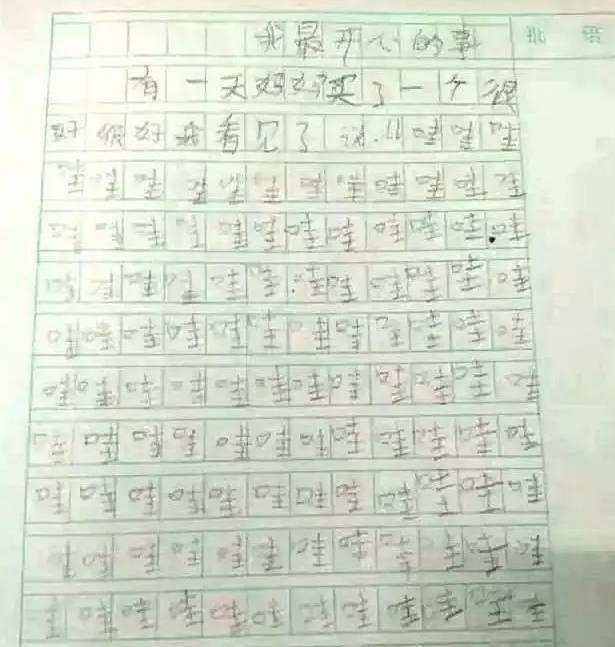 我最开心的事
有一天妈妈买了一个很
好很好我看见了说:"哇哇哇
哇哇哇哇哇哇哇哇哇哇哇哇
哇哇哇哇哇哇哇哇哇哇哇哇
哇哇哇哇哇哇哇哇哇哇哇哇
哇哇哇哇哇哇哇哇哇哇哇哇
哇哇哇哇哇哇哇哇哇哇哇哇
哇哇哇哇哇哇哇哇哇哇哇哇
哇哇哇哇哇哇哇哇哇哇哇哇
哇哇哇哇哇哇哇哇哇哇哇哇
哇哇哇哇哇哇哇哇哇哇哇哇